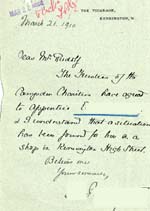 THE VICARAGE,
KENSINGTON, W.
March 21. 1910
Dear Mr Rudolf
The Trustees of the
Campden Charities have agreed
to apprentice E
& I understand that a situation
has been found for him in a
shop in Kensington High Street.
Believe me
Yours sincerely